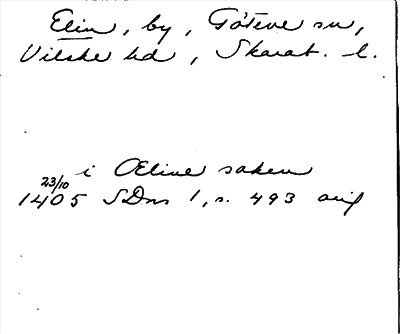 Elin, by, Göteve sn,
Vilske hd, Skarab. l.
i Æline soken
23/10
1405 SDns 1, s. 493 orig